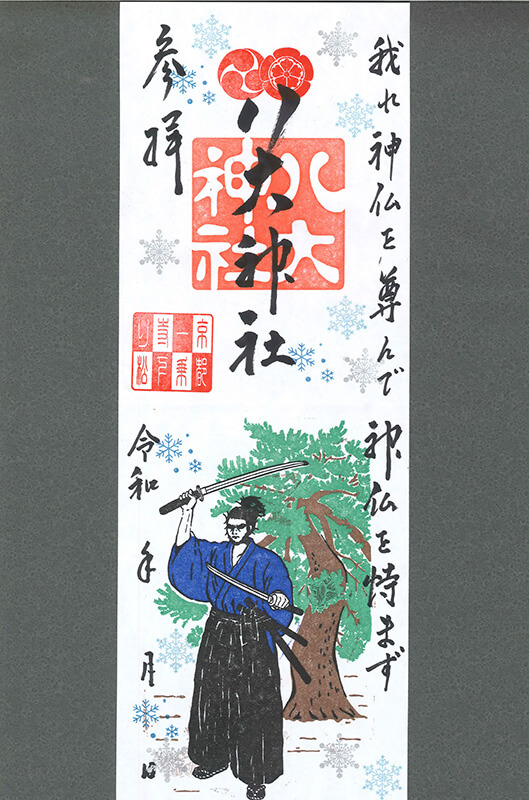 我れ神仏を尊んで 神仏を恃まず
八大神社
八大
神社
参拝
京都
一乗
寺下
り松
令和 年 月 日